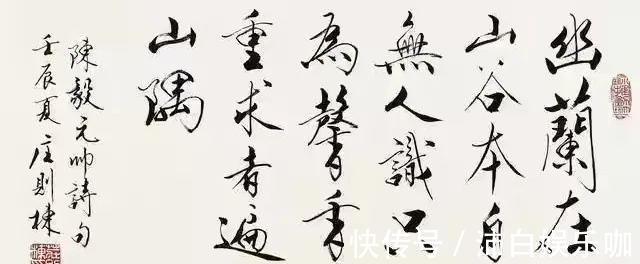 幽蘭在
山谷本自
無人識只
為馨香
重求者遍
山隅
陳毅元帥詩句
壬辰夏庄則棟
快传号 / 白娱乐咖